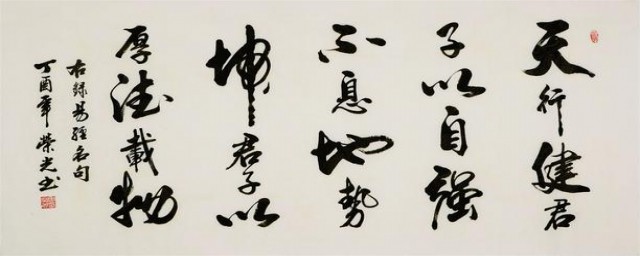 天行健君
子以自强
不息地势
坤君子以
厚德載物
右錄易經名句
丁酉年榮光书